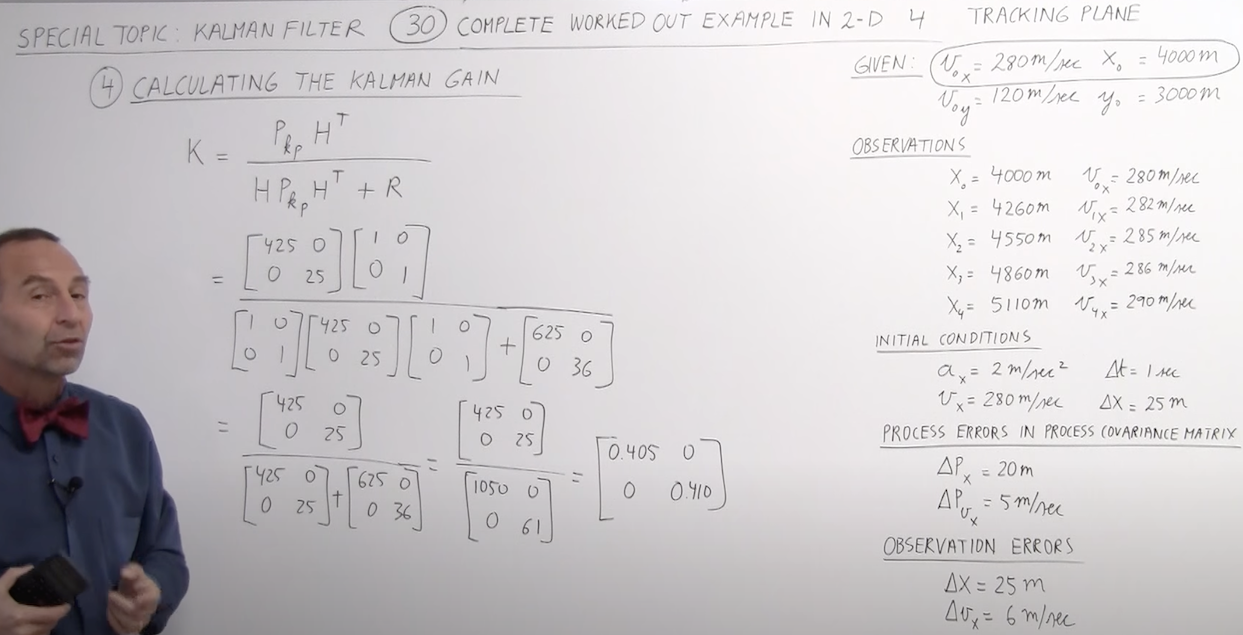 SPECIAL TOPIC: KALMAN FILTER (30) COMPLETE WORKED OUT EXAMPLE IN 2-D 4 TRACKING PLANE
(4) CALCULATING THE KALMAN GAIN
K = P_kp H^T / (H P_kp H^T + R)
= [425 0; 0 25] [1 0; 0 1] / ([1 0; 0 1] [425 0; 0 25] [1 0; 0 1] + [625 0; 0 36])
= [425 0; 0 25] / ([425 0; 0 25] + [625 0; 0 36]) = [425 0; 0 25] / [1050 0; 0 61] = [0.405 0; 0 0.410]
GIVEN: v_0x = 280 m/sec X_0 = 4000 m
v_0y = 120 m/sec y_0 = 3000 m
OBSERVATIONS
X_0 = 4000 m v_0x = 280 m/sec
X_1 = 4260 m v_1x = 282 m/sec
X_2 = 4550 m v_2x = 285 m/sec
X_3 = 4860 m v_3x = 286 m/sec
X_4 = 5110 m v_4x = 290 m/sec
INITIAL CONDITIONS
a_x = 2 m/sec² Δt = 1 sec
v_x = 280 m/sec ΔX = 25 m
PROCESS ERRORS IN PROCESS COVARIANCE MATRIX
ΔP_x = 20 m
ΔP_vx = 5 m/sec
OBSERVATION ERRORS
ΔX = 25 m
Δv_x = 6 m/sec